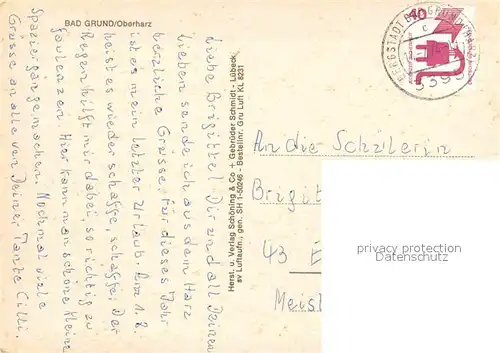 BAD GRUND/Oberharz
Liebe Brigitte! Dir und all Deinen
Lieben sende ich aus dem Harz
herzliche Grüsse. Für dieses Jahr
ist es mein letzter Urlaub. Am 1.8.
heist es wieder schaffe, schaffe! Der
Regen hilft mir dabei, so richtig zu
faulenzen. Hier kann man schöne kleine
Spaziergänge machen. Nochmal viele
Grüsse an alle von Deiner Tante Cilli.
Herst. u. Verlag Schöning & Co + Gebrüder Schmidt - Lübeck
sv Luftaufn., gen. SH 1-50246 - Bestellnr. Gru Luft KL 8231
BERGSTADT BAD GRUND
40
An die Schülerin
Brigit
43 E
Meist
privacy protection
Datenschutz